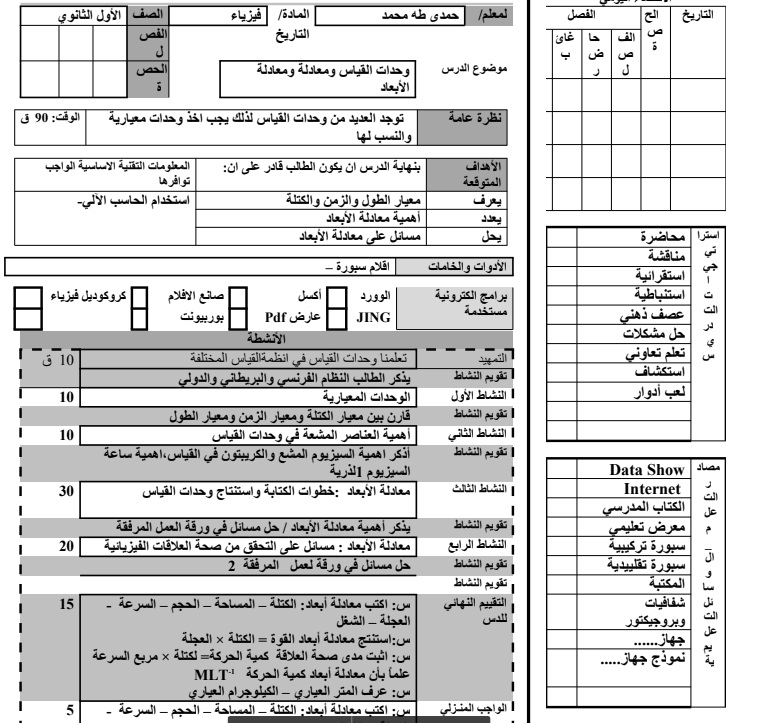 التاريخ
الحصة
الفصل
الفصل
حاضر
غائب
استراتيجيات التدريس
محاضرة
مناقشة
استقرائية
استنباطية
عصف ذهني
حل مشكلات
تعلم تعاوني
استكشاف
لعب أدوار
مصادر التعلم – الوسائل التعليمية
Data Show
Internet
الكتاب المدرسي
معرض تعليمي
سبورة تركيبية
سبورة تقليدية
المكتبة
شفافيات
وبروجيكتور
جهاز......
نموذج جهاز.....
لمعلم/ حمدى طه محمد المادة/ فيزياء الصف الأول الثانوي
التاريخ الفصل
الحصة
موضوع الدرس وحدات القياس ومعادلة ومعادلة
الأبعاد
نظرة عامة توجد العديد من وحدات القياس لذلك يجب اخذ وحدات معيارية الوقت: 90 ق
والنسب لها
الأهداف بنهاية الدرس ان يكون الطالب قادر على ان: المعلومات التقنية الاساسية الواجب
المتوقعة توافرها
يعرف معيار الطول والزمن والكتلة استخدام الحاسب الآلي-
يعدد أهمية معادلة الأبعاد
يحل مسائل على معادلة الأبعاد
الأدوات والخامات اقلام سبورة –
برامج الكترونية الوورد أكسل صانع الافلام كروكوديل فيزياء
مستخدمة JING عارض Pdf بوربيونت
الأنشطة
التمهيد تعلمنا وحدات القياس في انظمةالقياس المختلفة 10 ق
تقويم النشاط يذكر الطالب النظام الفرنسي والبريطاني والدولي
النشاط الأول الوحدات المعيارية 10
تقويم النشاط قارن بين معيار الكتلة ومعيار الزمن ومعيار الطول
النشاط الثاني أهمية العناصر المشعة في وحدات القياس 10
تقويم النشاط أذكر اهمية السيزيوم المشع والكريبتون في القياس،اهمية ساعة
السيزيوم 1لذرية
النشاط الثالث معادلة الأبعاد :خطوات الكتابة واستنتاج وحدات القياس 30
تقويم النشاط يذكر أهمية معادلة الأبعاد / حل مسائل في ورقة العمل المرفقة
النشاط الرابع معادلة الأبعاد : مسائل على التحقق من صحة العلاقات الفيزيائية 20
تقويم النشاط حل مسائل في ورقة لعمل المرفقة 2
تقويم النشاط
التقييم النهائي س: اكتب معادلة أبعاد: الكتلة – المساحة – الحجم – السرعة - 15
للدس العجلة – الشغل
س:استنتج معادلة أبعاد القوة = الكتلة × العجلة
س: اثبت مدى صحة العلاقة كمية الحركة= لكتلة × مربع السرعة
علماً بأن معادلة أبعاد كمية الحركة MLT⁻¹
س: عرف المتر العياري – الكيلوجرام العياري
الواجب المنزلي س: اكتب معادلة أبعاد: الكتلة – المساحة – الحجم – السرعة - 5